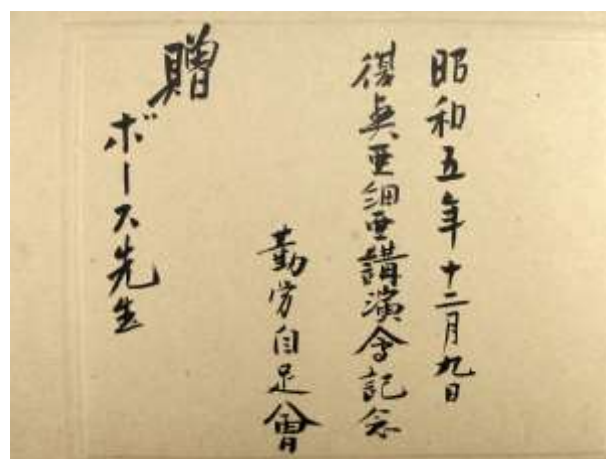 昭和五年十二月九日
復興亜細亜講演会記念
勤労自足會
贈
ボース先生